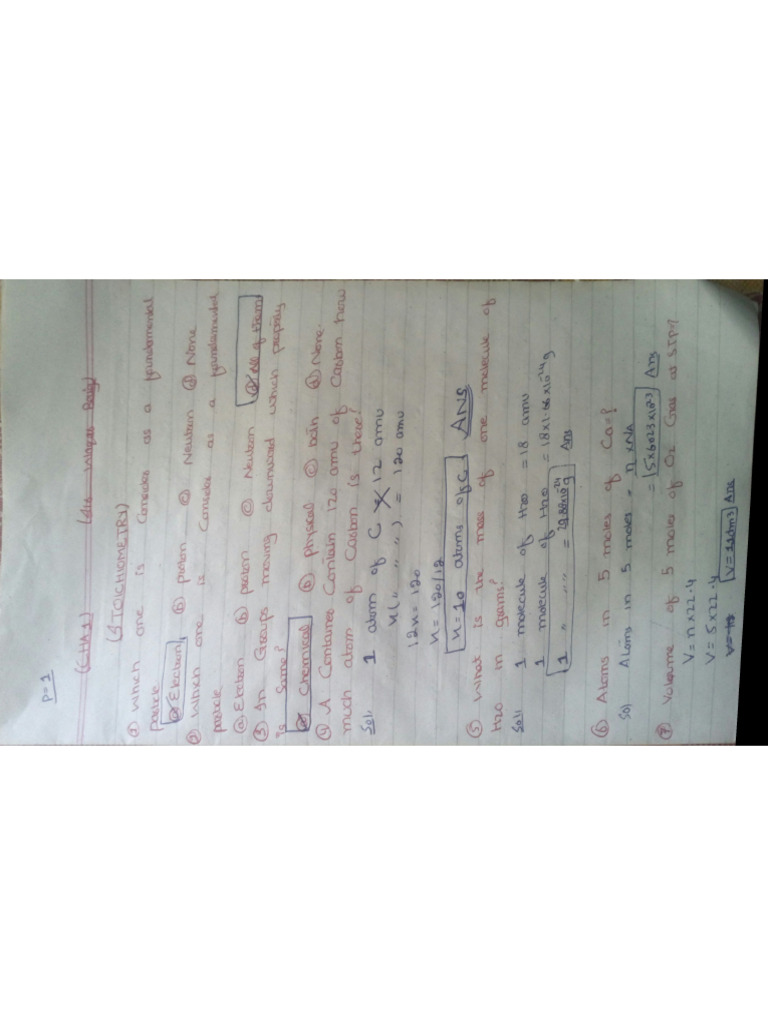 P=1
(CHA1) (Sir Waqas Baig)
(STOICHIOMETRY)
① Which one is Consider as a foundamental
particle
ⓐ Electron, ⓑ proton ⓒ Neutron ⓓ None
② Which one is Conside as a foundamental
particle
ⓐ Electron ⓑ proton ⓒ Neutron ⓓ All of them
③ In Groups moving downward which property
is same?
ⓐ Chemical ⓑ physical ⓒ both ⓓ None.
④ A Container Contain 120 amu of Carbon how
much atom of Carbon is there?
Sol: 1 atom of C 12 amu
x( " " ") = 120 amu
12x = 120
x = 120/12
x = 10 atoms of C ANS
⑤ What is the mass of one molecule of
H2O in grams?
Sol: 1 molecule of H2O = 18 amu
1 molecule of H2O = 18x1.66x10-24 g
1 " " " = 29.88x10-24 g Ans
⑥ Atoms in 5 moles of Ca=?
Sol Atoms in 5 moles = n x NA
= 5x6.023x10^23 Ans
⑦ Volume of 5 moles of O2 Gas at S.T.P=?
V = n x 22.4
V = 5 x 22.4
V = 112dm3 Ans